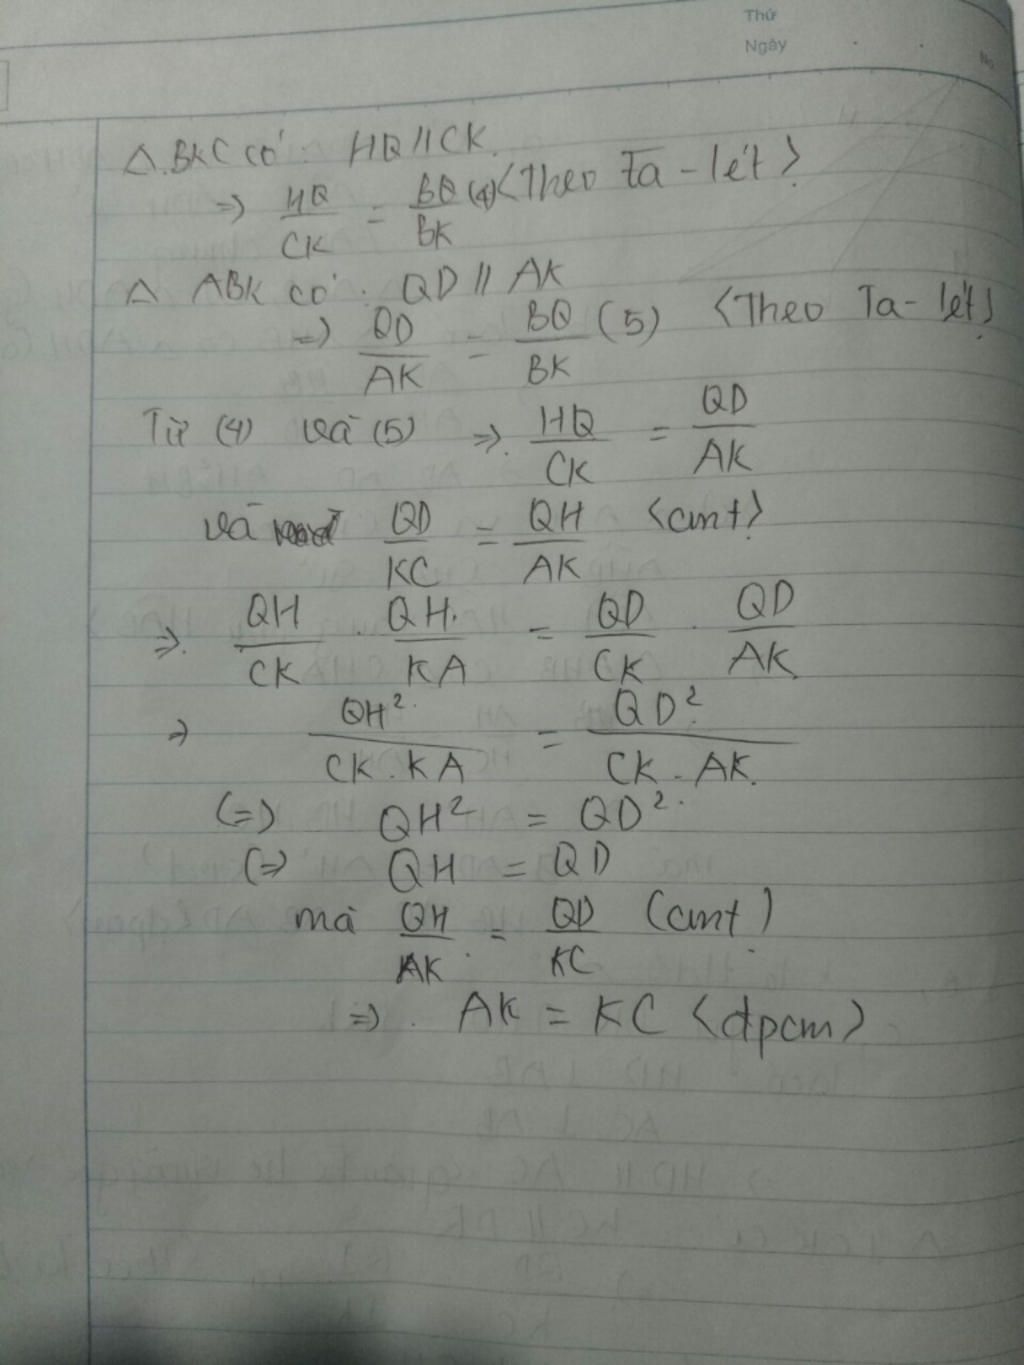 Thứ
Ngày
No
Δ BKC có: HQ // CK.
=> HQ/CK = BQ/BK (4) <Theo Ta-lét>
Δ ABK có: QD // AK
=> QD/AK = BQ/BK (5) <Theo Ta-lét>
Từ (4) và (5) => HQ/CK = QD/AK
và QD/KC = QH/AK <cmt>
=> QH/CK . QH/KA = QD/CK . QD/AK
=> QH²/CK.KA = QD²/CK.AK.
(=) QH² = QD².
(=> QH = QD
mà QH/AK = QD/KC (cmt)
=> AK = KC <đpcm>